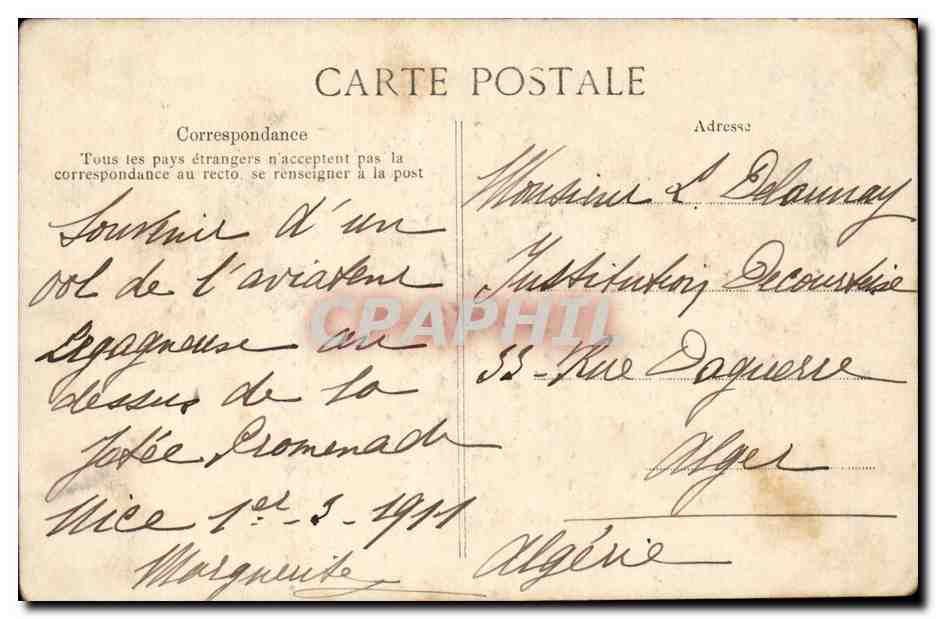 CARTE POSTALE
Correspondance
Tous les pays étrangers n'acceptent pas la
correspondance au recto, se renseigner à la post
Souvenir d'un
vol de l'aviateur
Legagneuse au
dessus de la
Jetée Promenade
Nice 1er-3-1911
Marguerite
Adresse
Monsieur L. Delaunay
Institution Decourteise
33 - Rue Daguerre
Alger
Algérie
CPAPHIL